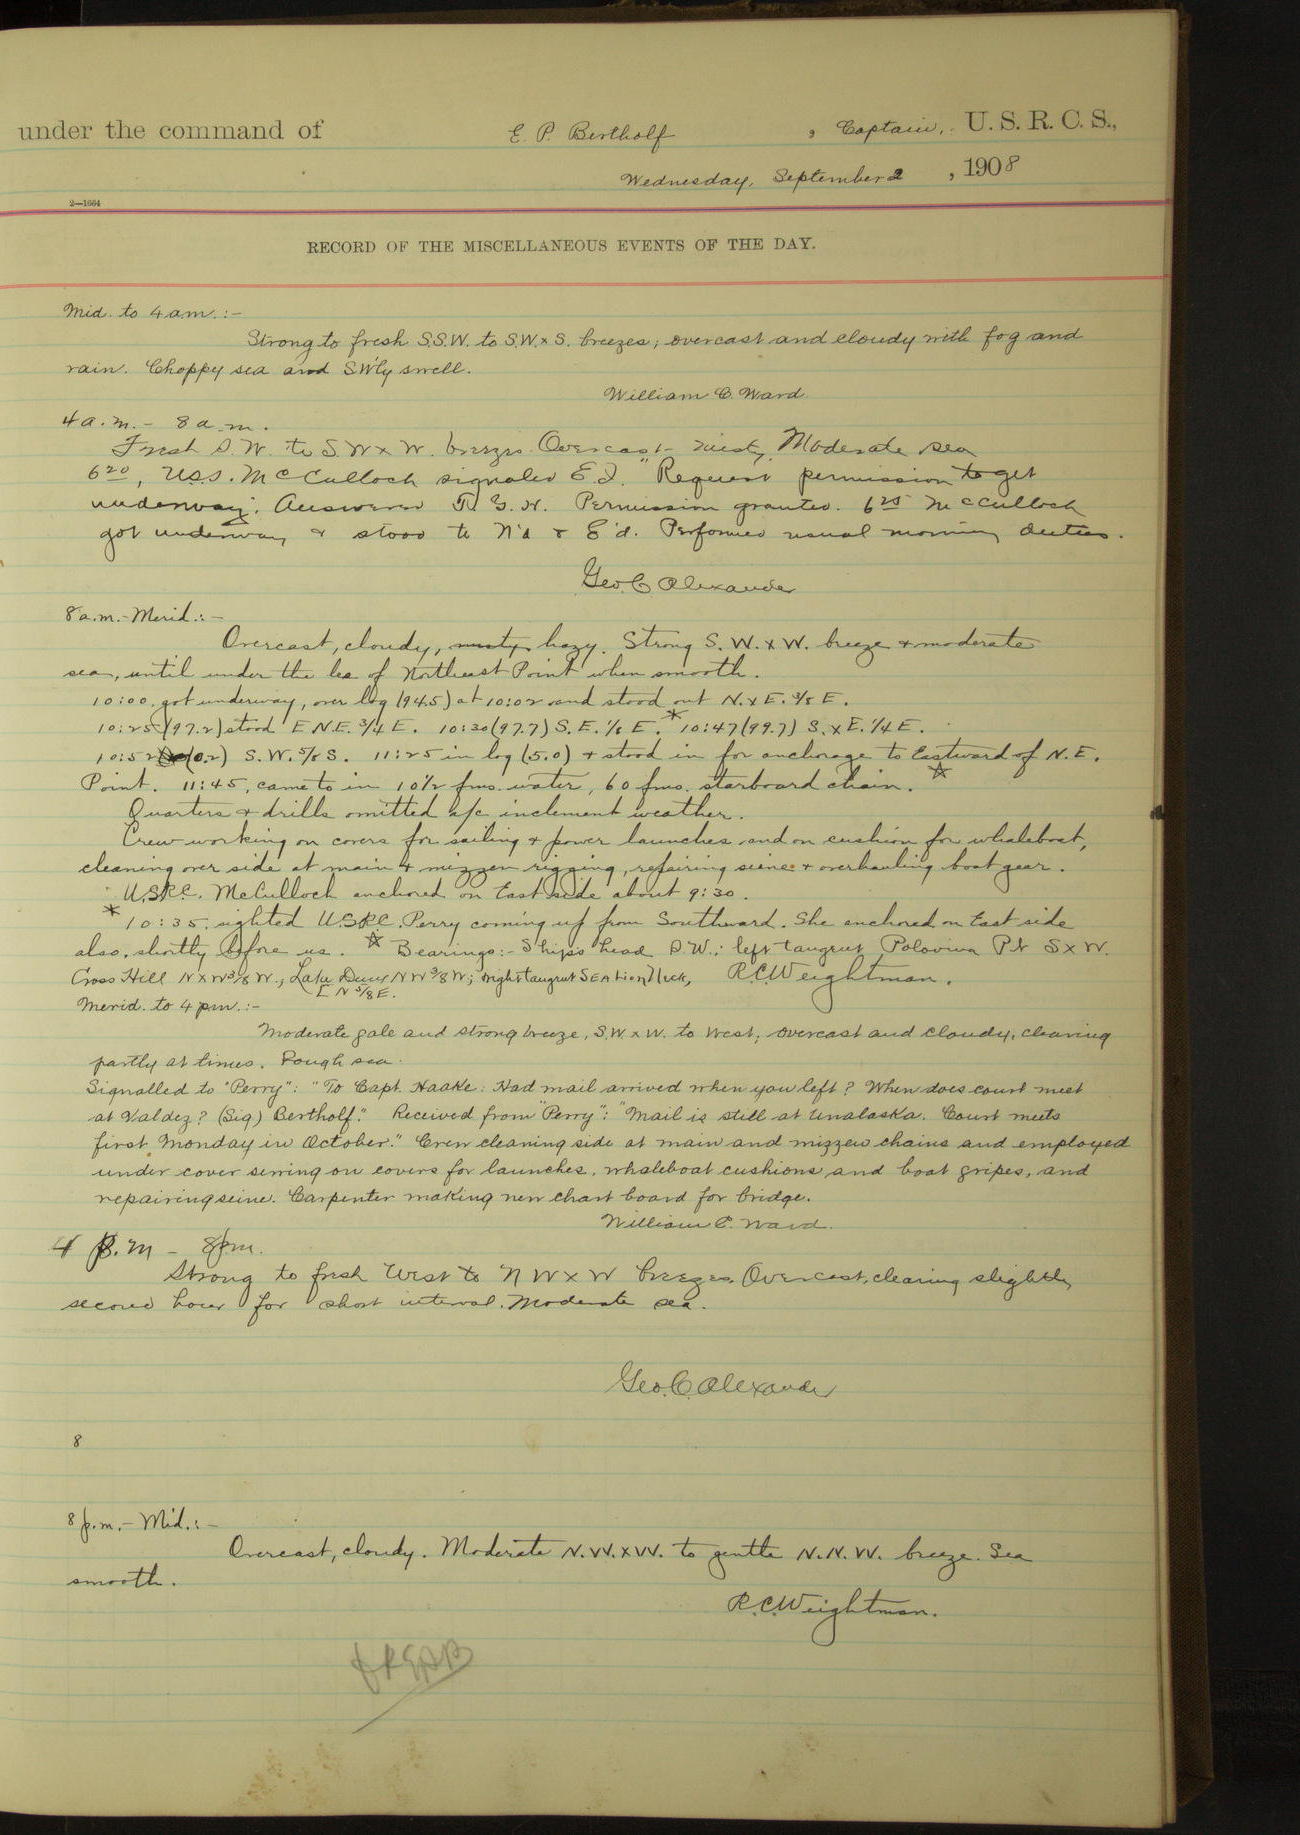 under the command of E. P. Bertholf, Captain, U. S. R. C. S.,
Wednesday, September 2, 1908
2—1664
RECORD OF THE MISCELLANEOUS EVENTS OF THE DAY.
Mid. to 4 a.m.:-
Strong to fresh S.S.W. to S.W. x S. breezes; overcast and cloudy with fog and
rain. Choppy sea and SW'ly swell.
William C. Ward
4 a.m. - 8 a.m.
Fresh S.W. to S W x W. breezes. Overcast - misty. Moderate sea
6 20, U.S.S. McCulloch signaled E.J. "Request permission to get
underway". Answered Permission granted. 6 25 McCulloch
got underway & stood to N'd & E'd. Performed usual morning duties.
Geo. C. Alexander
8 a.m.-Merid.:-
Overcast, cloudy, misty, hazy. Strong S. W. x W. breeze & moderate
sea, until under the lee of Northeast Point when smooth.
10:00 got underway, over log (94.5) at 10:02 and stood out N. x E. 3/8 E.
10:25 (97.2) stood E N.E. 3/4 E. 10:30 (97.7) S. E. 1/8 E. * 10:47 (99.7) S. x E. 1/4 E.
10:52 (0.2) S. W. 5/8 S. 11:25 in log (5.0) & stood in for anchorage to Eastward of N. E.
Point. 11:45, came to in 10 1/2 fms. water, 60 fms. starboard chain. ☆
Quarters & drills omitted a/c inclement weather.
Crew working on covers for sailing & power launches and on cushion for whaleboat,
cleaning over side at main & mizzen rigging, repairing seine & overhauling boat gear.
U.S.R.C. McCulloch anchored on East side about 9:30.
* 10:35, sighted U.S.R.C. Perry coming up from Southward. She anchored on East side
also, shortly before us. ☆ Bearings:- Ship's head S.W.; left tangent Polovina Pt S x W.
Cross Hill N x W 3/8 W.; Lake NW 3/8 W; right tangent SEA Lion Neck,
E N 5/8 E.
R.C. Weightman.
Merid. to 4 pm.:-
Moderate gale and strong breeze, S.W. x W. to West; overcast and cloudy, clearing
partly at times. Rough sea.
Signalled to "Perry": "To Capt. Haake: Had mail arrived when you left? When does court meet
at Valdez? (Sig) Bertholf." Received from "Perry": "Mail is still at Unalaska. Court meets
first Monday in October." Crew cleaning side at main and mizzen chains and employed
under cover sewing on covers for launches, whaleboat cushions, and boat gripes, and
repairing seine. Carpenter making new chart board for bridge.
William C. Ward.
4 p.m - 8 pm.
Strong to fresh West to N W x W breezes. Overcast, clearing slightly
second hour for short interval. Moderate sea.
Geo. C. Alexander
8
8 p.m.- Mid.:-
Overcast, cloudy. Moderate N.W. x W. to gentle N.N.W. breeze. Sea
smooth.
R.C. Weightman.